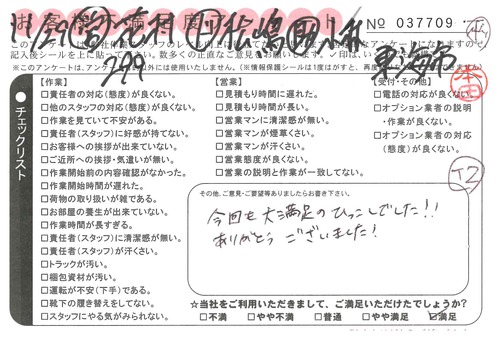 No 037709
このアンケートは
※このアンケートは、アンケート
以外には使用いたしません。(※情報保護シールは1度はがすと、再度
チェックリスト
【作業】
□責任者の対応(態度)が良くない。
□他のスタッフの対応(態度)が良くない。
□作業を見ていて不安がある。
□責任者(スタッフ)に好感が持てない。
□お客様への挨拶が出来ていない。
□ご近所への挨拶・気遣いが無い。
□作業開始前の内容確認がなかった。
□作業開始時間が遅れた。
□荷物の取り扱いが雑である。
□お部屋の養生が出来ていない。
□作業時間が長すぎる。
□責任者(スタッフ)に清潔感が無い。
□責任者(スタッフ)が汗くさい。
□トラックが汚い。
□梱包資材が汚い。
□運転が不安(下手)である。
□靴下の履き替えをしてない。
□スタッフにやる気がみられない。
【営業】
□見積もり時間に遅れた。
□見積もり時間が長い。
□営業マンに清潔感が無い。
□営業マンが煙草くさい。
□営業マンが汗くさい。
□営業態度が良くない。
□営業の説明と作業が一致してない。
【受付・その他】
□電話の対応が良くない。
□オプション業者の説明
・作業が良くない。
□オプション業者の対応
(態度)が良くない。
その他、ご意見・ご要望等ありましたらお書き下さい。
今回も大満足のひっこしでした!!
ありがとうございました!
☆当社をご利用いただきまして、ご満足いただけたでしょうか?
□不満 □やや不満 □普通 □やや満足 ☑満足
東海市